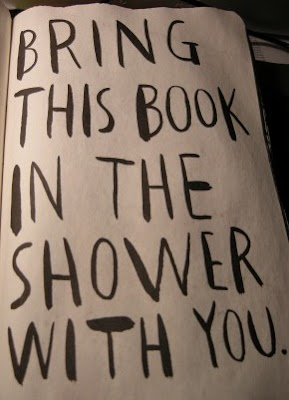 BRING
THIS BOOK
IN THE
SHOWER
WITH YOU.